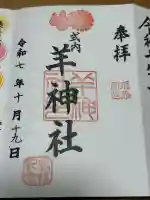 奉拝
式内
羊神社
令和七年十月十九日
羊神